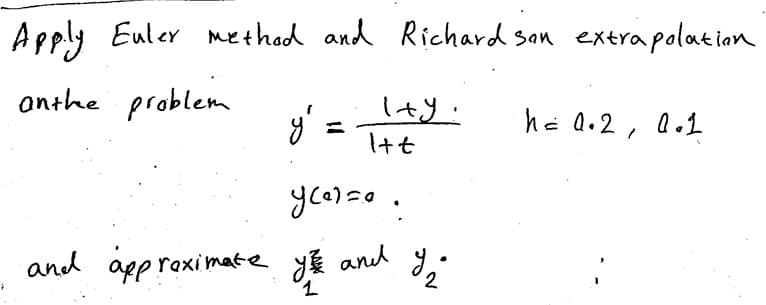 Apply Euler method and Richardson extrapolation
on the problem y' = (1+y)/(1+t) h = 0.2, 0.1
y(0)=0.
and approximate y₁ and y₂.